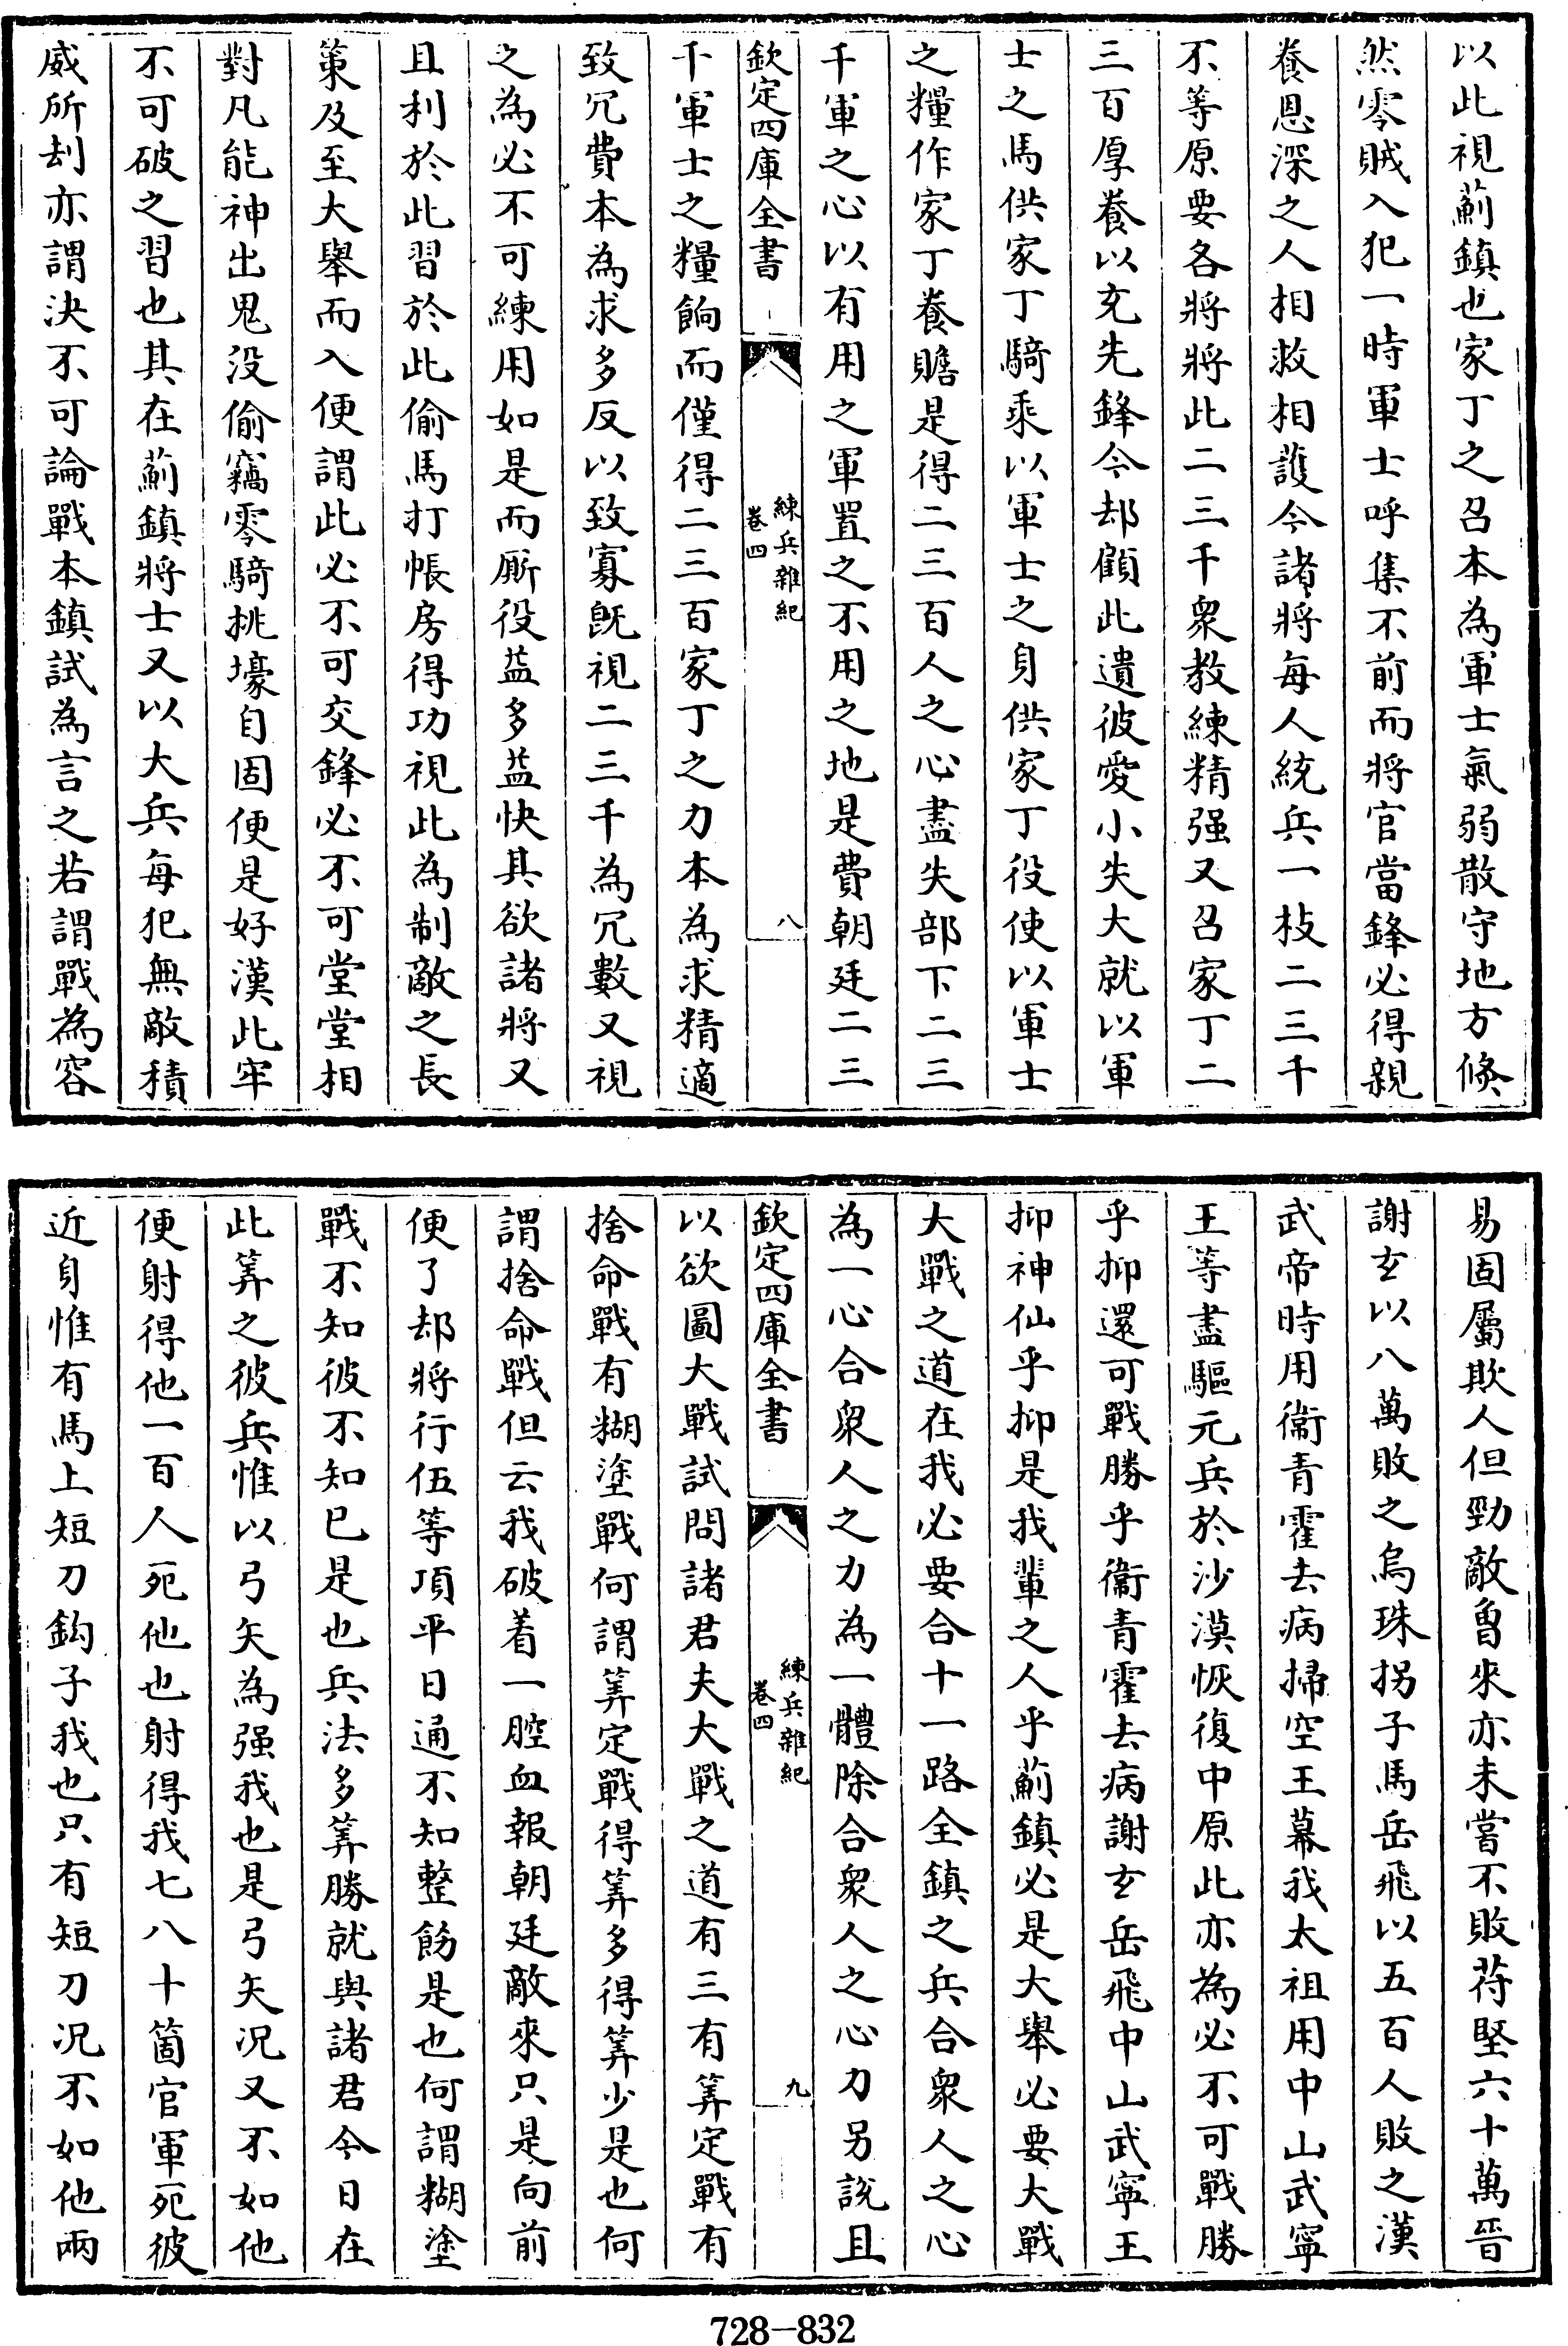 以此視薊鎮也家丁之召本為軍士氣弱散守地方倐
然零賊入犯一時軍士呼集不前而將官當鋒必得親
養恩深之人相救相護今諸將每人統兵一枝二三千
不等原要各將將此二三千衆教練精强又召家丁二
三百厚養以充先鋒今却顧此遺彼愛小失大就以軍
士之馬供家丁騎乘以軍士之身供家丁役使以軍士
之糧作家丁養贍是得二三百人之心盡失部下二三
千軍之心以有用之軍置之不用之地是費朝廷二三
欽定四庫全書
練兵雜紀
卷四
八
千軍士之糧餉而僅得二三百家丁之力本為求精適
致冗費本為求多反以致寡旣視二三千為冗數又視
之為必不可練用如是而厮役益多益快其欲諸將又
且利於此習於此偷馬打帳房得功視此為制敵之長
策及至大舉而入便謂此必不可交鋒必不可堂堂相
對凡能神出鬼没偷竊零騎挑壕自固便是好漢此牢
不可破之習也其在薊鎮將士又以大兵每犯無敵積
威所刦亦謂決不可論戰本鎮試為言之若謂戰為容
易固屬欺人但勁敵鲁來亦未嘗不敗苻堅六十萬晉
謝玄以八萬敗之烏珠拐子馬岳飛以五百人敗之漢
武帝時用衞青霍去病掃空王幕我太祖用中山武寧
王等盡驅元兵於沙漠恢復中原此亦為必不可戰勝
乎抑還可戰勝乎衞青霍去病謝玄岳飛中山武寧王
抑神仙乎抑是我輩之人乎薊鎮必是大舉必要大戰
大戰之道在我必要合十一路全鎮之兵合衆人之心
為一心合衆人之力為一體除合衆人之心力另說且
欽定四庫全書
練兵雜紀
卷四
九
以欲圖大戰試問諸君夫大戰之道有三有筭定戰有
捨命戰有糊塗戰何謂筭定戰得筭多得筭少是也何
謂捨命戰但云我破着一腔血報朝廷敵來只是向前
便了却將行伍等項平日通不知整飭是也何謂糊塗
戰不知彼不知已是也兵法多筭勝就與諸君今日在
此筭之彼兵惟以弓矢為强我也是弓矢况又不如他
便射得他一百人死他也射得我七八十箇官軍死彼
近身惟有馬上短刀鈎子我也只有短刀况不如他兩
728—832